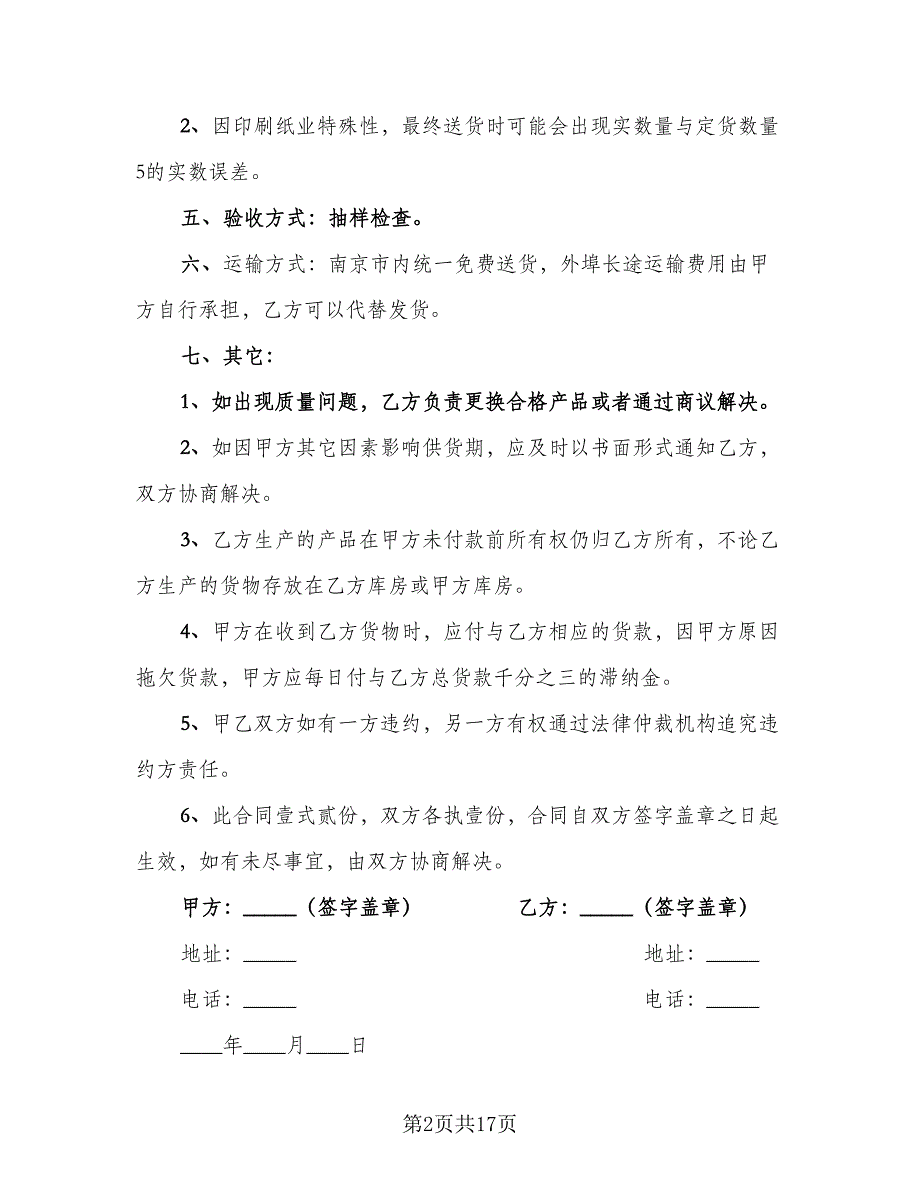 2、因印刷纸业特殊性，最终送货时可能会出现实数量与定货数量
5的实数误差。
五、验收方式：抽样检查。
六、运输方式：南京市内统一免费送货，外埠长途运输费用由甲
方自行承担，乙方可以代替发货。
七、其它：
1、如出现质量问题，乙方负责更换合格产品或者通过商议解决。
2、如因甲方其它因素影响供货期，应及时以书面形式通知乙方，
双方协商解决。
3、乙方生产的产品在甲方未付款前所有权仍归乙方所有，不论乙
方生产的货物存放在乙方库房或甲方库房。
4、甲方在收到乙方货物时，应付与乙方相应的货款，因甲方原因
拖欠货款，甲方应每日付与乙方总货款千分之三的滞纳金。
5、甲乙双方如有一方违约，另一方有权通过法律仲裁机构追究违
约方责任。
6、此合同壹式贰份，双方各执壹份，合同自双方签字盖章之日起
生效，如有未尽事宜，由双方协商解决。
甲方：_____（签字盖章） 乙方：_____（签字盖章）
地址：_____ 地址：_____
电话：_____ 电话：_____
____年____月____日
第2页共17页